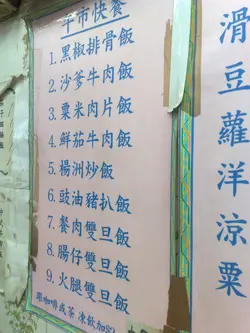 午市快餐
1. 黑椒排骨飯
2. 沙爹牛肉飯
3. 粟米肉片飯
4. 鮮茄牛肉飯
5. 楊洲炒飯
6. 豉油豬扒飯
7. 餐肉雙旦飯
8. 腸仔雙旦飯
9. 火腿雙旦飯
跟咖啡或茶 凍飲加$2
滑
豆
蘿
洋
涼
粟